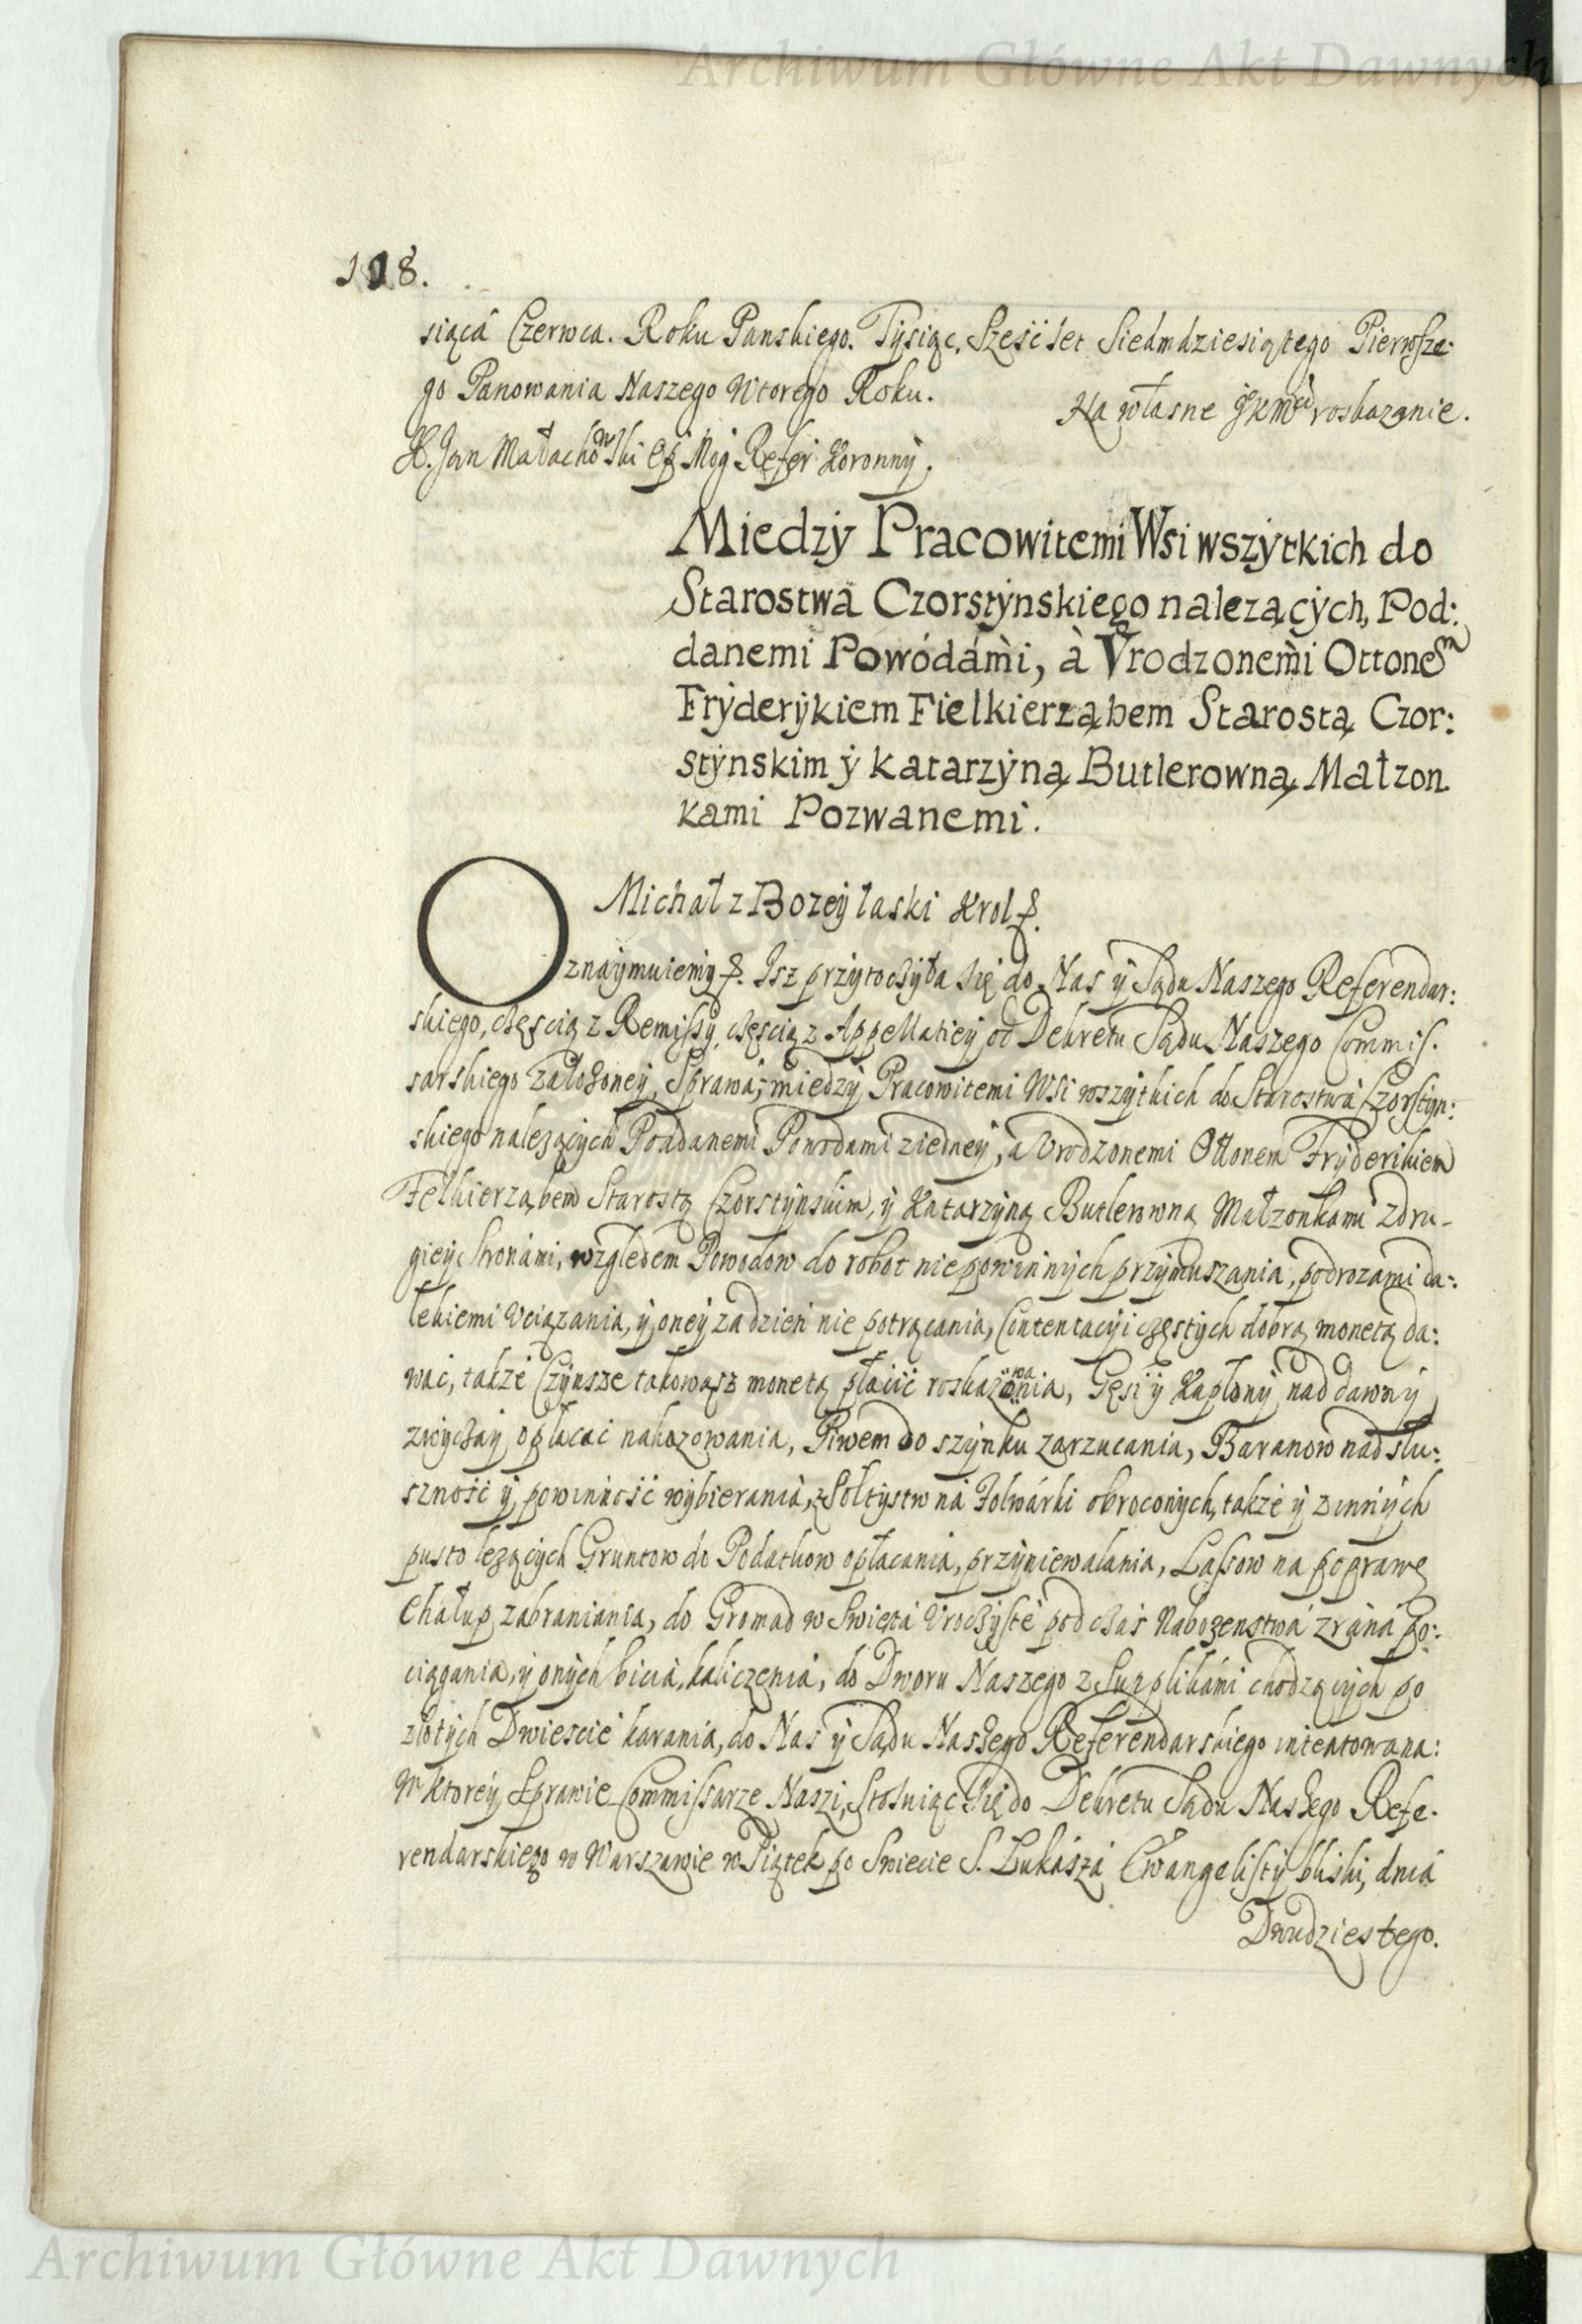 Archiwum Główne Akt Dawnych
118.
siącá Czerwca. Roku Panskiego. Tysiąc, Sześćset Siedmdziesiątego Pierwsze:
go Panowania Naszego Wtorego Roku.
Na własne JKMći roskazanie.
X. Jan Małachowski Ref Koronny.
Miedzy Pracowitemi Wsi wszytkich do
Starostwá Czorstynskiego nalezących, Pod:
danemi Powódámi, à Vrodzonemi Ottonem
Fryderykiem Fielkierząbem Starostą Czor:
stynskim ÿ Katarzÿną Butlerowną Małzon
kami Pozwanemi.
Michał z Bozeÿ łaski Krol
Oznaÿmuiemÿ. Isz przÿtoczÿła się do Nas ÿ Sądu Naszego Referendar:
skiego, częscią z Remissÿ, częscią z Appellatieÿ od Dekretu Sądu Naszego Commis.
sarskiego założoneÿ, Sprawá; miedzÿ Pracowitemi Wsi wszÿtkich do Starostwá Czorstÿn:
skiego nalezącÿch Poddanemi Powodami z iedneÿ, a Vrodzonemi Ottonem Frÿderikiem
Felkierząbem Starostą Czorstÿnskim, ÿ Katarzÿną Butlerowną Małzonkami z dru-
gieÿ Stronámi, względem Powodow do robot niepowinnÿch przÿmuszania, podrozami da:
lekiemi vciązania, ÿ oneÿ za dzień nie potrącania, Contentacÿi częstÿch dobrą monetą da:
wać, także Czÿnsze takowąsz monetą płacić roskazowania, Gęsi ÿ Kapłonÿ nad dawnÿ
zwÿczaÿ opłacać nakazowania, Piwem do szÿnku zarzucania, Baranow nad słu:
szność ÿ powinność wÿbierania, z Sołtÿstw ná Folwárki obroconÿch, także ÿ z innÿch
pusto lezącÿch Gruntow do Podatkow opłacania, przÿniewalania, Lassow na poprawę
Chałup zabraniania, do Gromad w Swiętá Vroczÿste pod czás Nabozenstwá z ráná po:
ciągania, ÿ onÿch bicia, kaliczenia, do Dworu Naszego z Supplikámi chodzącÿch po
złotÿch Dwieście karania, do Nas ÿ Sądu Naszego Referendarskiego intentowana:
W ktoreÿ Sprawie Commissarze Naszi, Stosuiąc się do Dekretu Sądu Naszego Refe.
rendarskiego w Warszawie w Piątek po Swiecie S. Łukászá Ewangelistÿ bliski, dniá
Dwudziestego.
Archiwum Główne Akt Dawnych